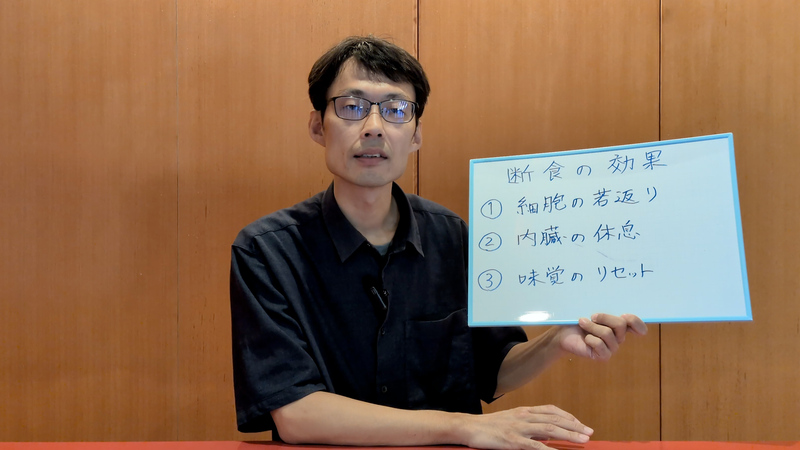 断食の効果
① 細胞の若返り
② 内臓の休息
③ 味覚のリセット